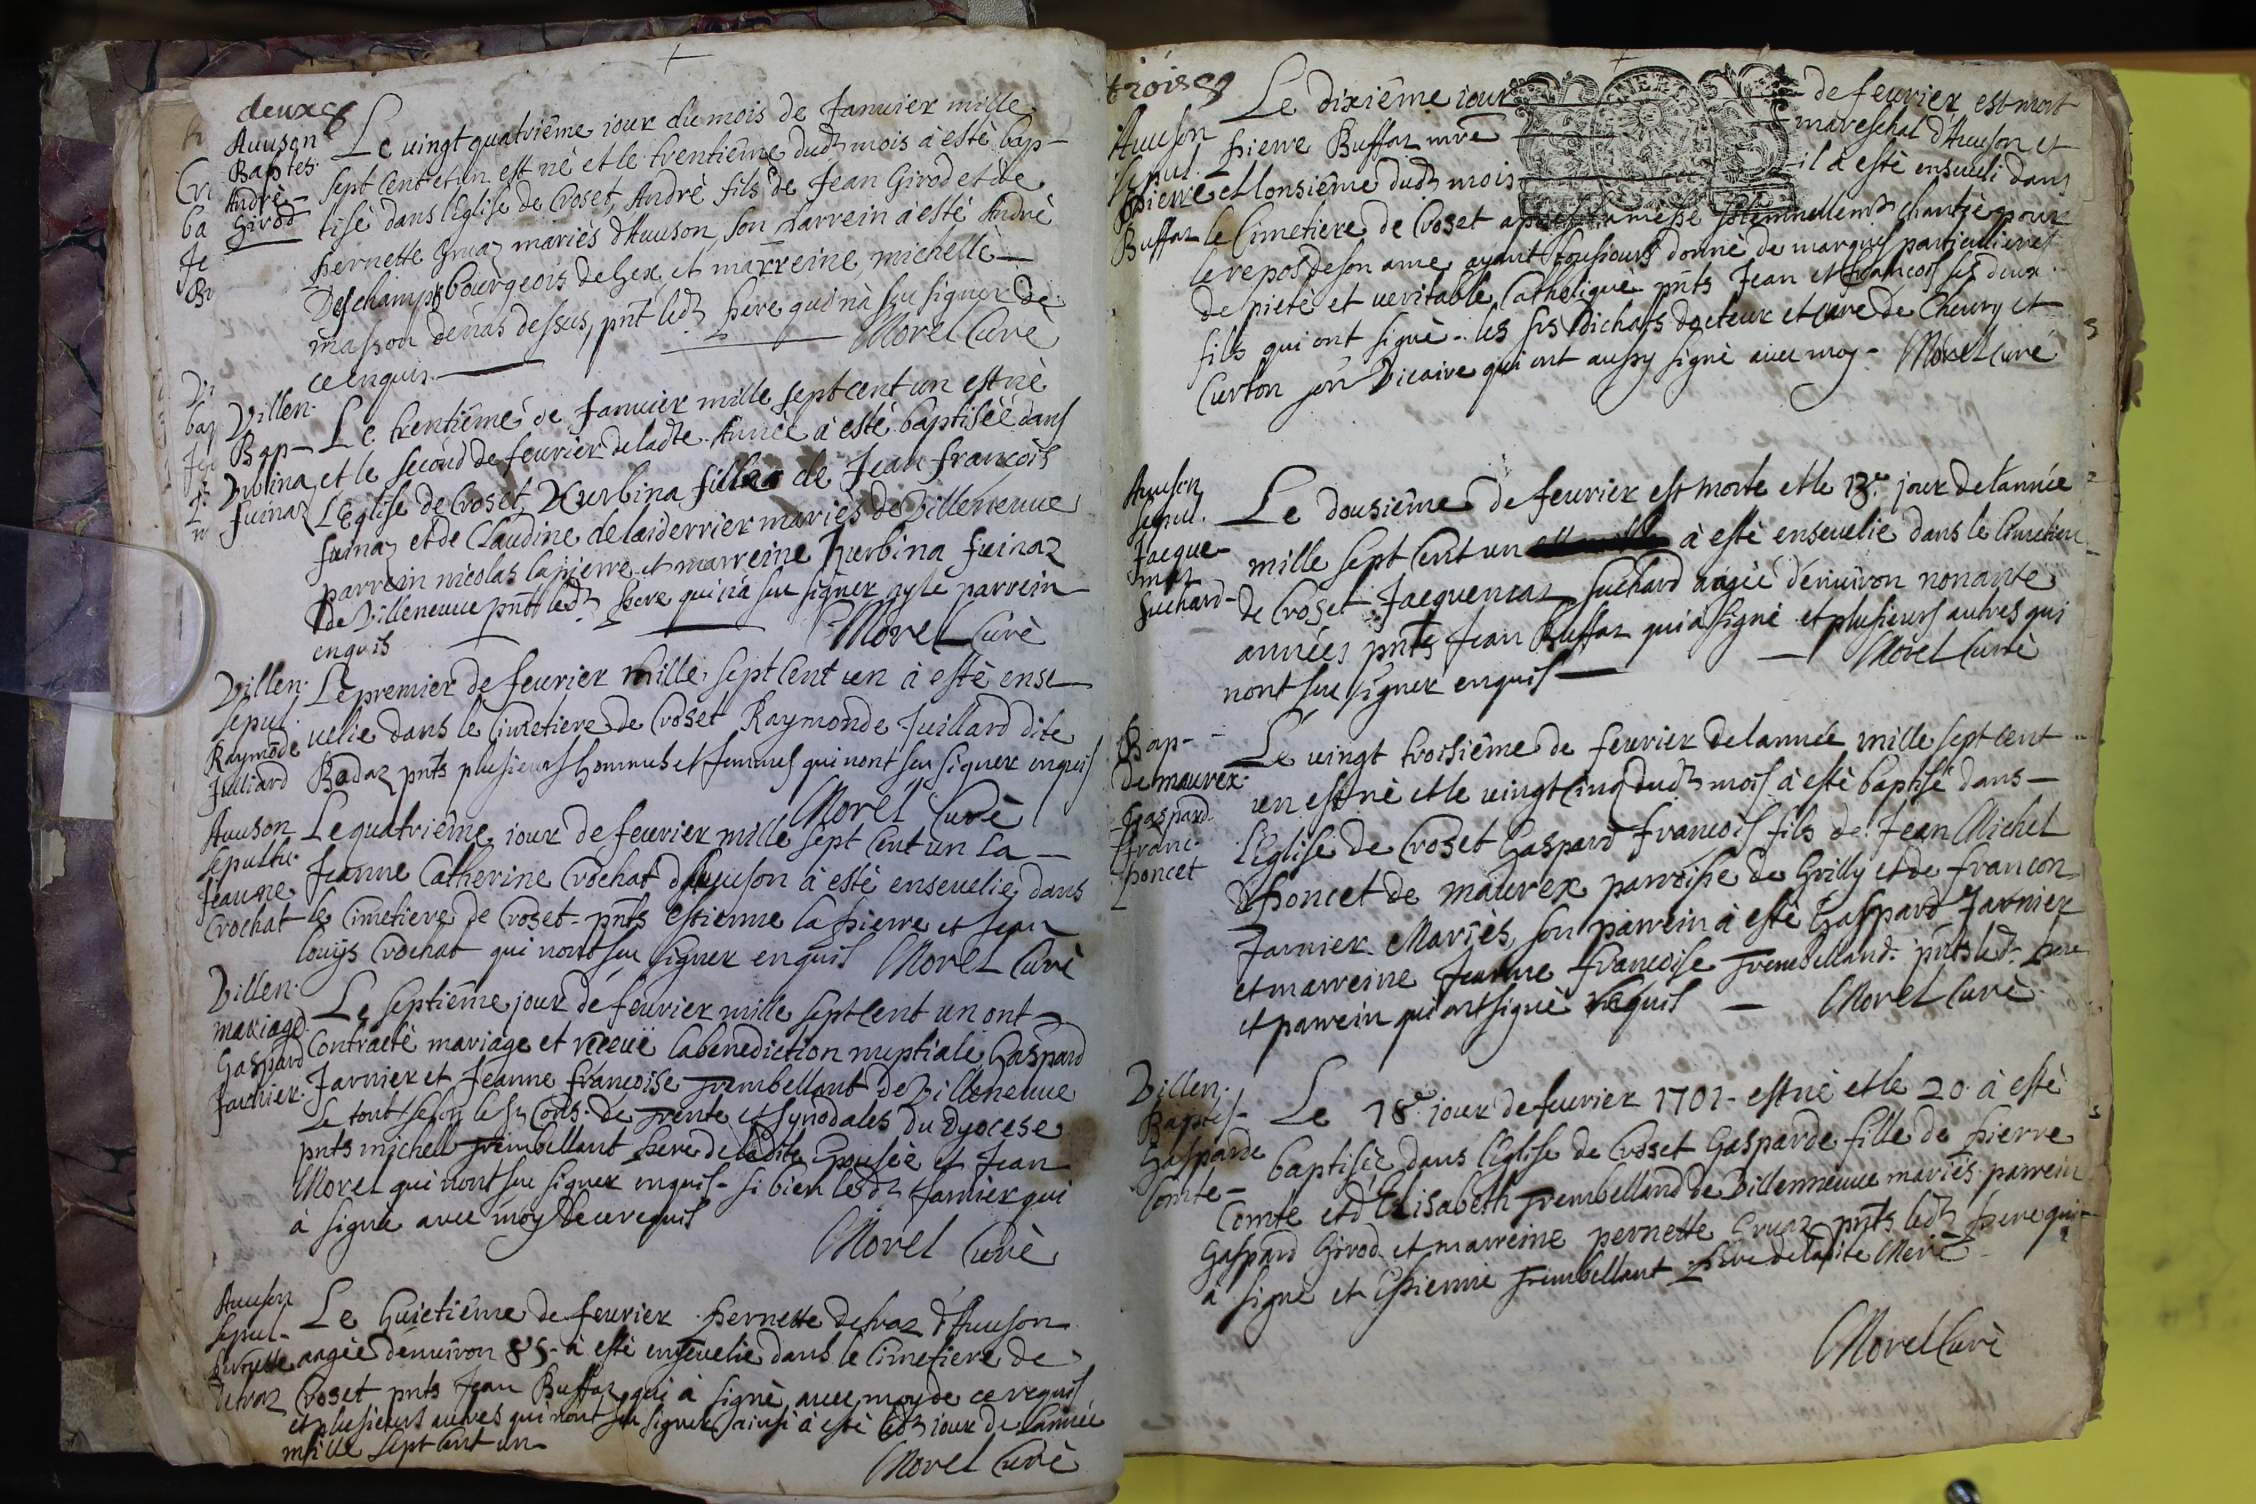 deuxe
Auuson
Baptes.
André
Girod
Le vingt quatriême iour du mois de Januier mille
sept cent et un est nè et le trentiême dudt mois à estè bap-
tisè dans l'Eglise de Croset, Andrè fils de Jean Girod et de
pernette Gruaz mariès d'Auuson, son parrein à estè Andrè
Deschamps bourgeois de Gex, et marreine michelle
masson de
dessus, pnt ledt pere qui n'a sçu signer de
ce enquis. Morel Curè
Villen.
Bap-
Vrbina
fuinaz
Le trentiême de Januier mille sept cent un est nè
et le second de feurier de ladte Annèe à estè baptisèe dans
L'eglise de Croset, Hurbina fille de Jean françois
fuinaz et de Claudine delarderrier mariès de Villeneuue
parrein nicolas lapierre et marreine hurbina fuinaz
de Villeneuue pnt ledt pere qui n'à sçu signer ny le parrein
enquis Morel Curè
Villen.
sepul.
Raymōde
Juilliard
Le premier de feurier mille sept cent un à estè ense-
uelie dans le Cimetiere de Croset Raymonde Juillard dite
Badaz pnts plusieurs hommes et femmes qui nont sceu signer enquis
Morel Curè
Auuson
sepultu.
Jeanne
Crochat
Le quatriême iour de feurier mille sept cent un La
Jeanne Catherine Crochat d'Auuson à estè enseuelie dans
le Cimetiere de Croset - pnts estienne la pierre et Jean
louys Crochat qui nont sçu signer enquis Morel Curè
Villen.
mariage
Gaspard
Jarnier.
Le septiême jour de feurier mille sept cent un ont
Contractè mariage et receüe la benediction nuptiale Gaspard
Jarnier et Jeanne françoise Trembellant de Villeneuue
Le tout selon le St Cons. de Trente et synodales du Dyocese
pnts michell Trembellant pere de ladite Epousèe et Jean
Morel qui nont sçu signer enquis - si bien ledt Jarnier qui
à signè auec moy de ce requis
Morel Curè
Auuson
sepul-
pernette
detraz
Le huietiême de feurier pernette detraz d'Auuson
aagèe d'enuiron 85 - à estè enseuelie dans le Cimetiere de
Croset pnts Jean Buffaz qui à signè auec moy de ce requis
et plusieurs autres qui nont sçu signer ainsi à estè ledt iour de l'annèe
mille sept cent un
Morel Curè
troise
Auuson
sepul.
Pierre
Buffaz
Le dixiême iour de feurier est mort
pierre Buffaz mre mareschal d'Auuson et
et l'onsiême dudt mois il à estè enseueli dans
le Cimetiere de Croset apres la messe solemnellemt chantèe pour
le repos de son ame, ayant tousiours donnè de marques particulieres
de pietè et veritable Catholique pnts Jean et françois ses deux
fils qui ont signè - les srs Dichats docteur et curè de Cheury et
Curton son Vicaire qui ont aussy signè auec moy - Morel Curè
Auuson
sepul.
Jacque-
maz
Suchard-
Le dousiême de feurier est morte et le 13e jour de l'annèe
mille sept cent un à estè enseuelie dans le Cimetiere
de Croset Jacquemaz Suchard aagèe d'enuiron nonante
annèes pnts Jean Buffaz qui à signè et plusieurs autres qui
nont sçu signer enquis Morel Curè
Bap-
de maurex.
Gaspard
franc.
poncet
Le vingt troisiême de feurier de l'annèe mille sept cent
un est nè et le vingt cinq dudt mois à estè baptisè dans
l'Eglise de Croset Gaspard françois fils de Jean Michel
Phoncet de maurex parroisse de Grilly et de françon
Jarnier Mariès, son parrein à estè Gaspard Jarnier
et marreine Jeanne françoise Trembelland. pnts ledt pere
et parrein qui ont signè requis Morel Curè
Villen.
Baptes-
Gasparde
Comte-
Le 18e jour de feurier 1701 - est nè et le 20 à estè
baptisèe dans l'Eglise de Croset Gasparde fille de pierre
Comte et d'Elisabeth Trembelland de Villenneuue mariès parrein
Gaspard Girod et marreine pernette Gruaz pnts ledt pere qui
à signè et Estienne Trembellant pere de ladite Mere
Morel Curè